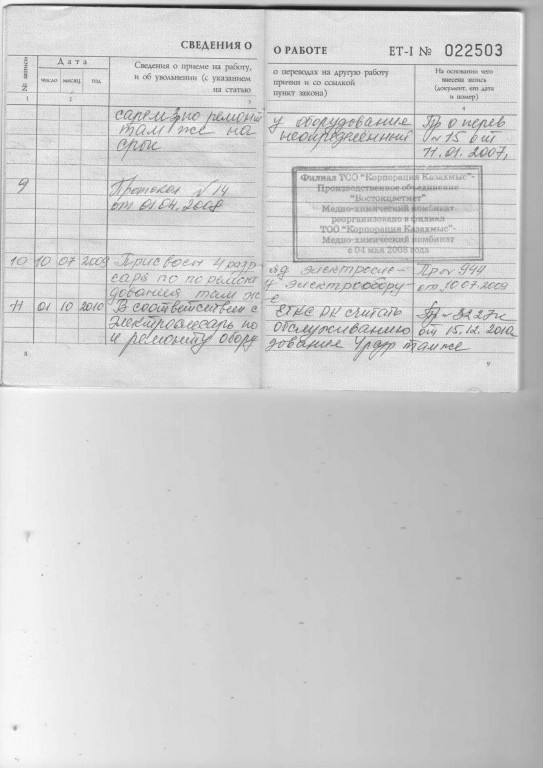 СВЕДЕНИЯ О
№ записи
Дата
число месяц год
Сведения о приеме на работу,
и об увольнении (с указанием
на статью
1 2 3
сарем по ремонт
там же на
срок
9 Протокол №14
от 01.04.2008
10 10 07 2009 Присвоен 4 разр
саря по ремонт
дования там ж
11 01 10 2010 В соответствии с
электрослесарь по
и ремонту обору
8
О РАБОТЕ ЕТ-I № 022503
о переводах на другую работу
причин и со ссылкой
пункт закона)
На основании чего
внесена запись
(документ, его дата
и номер)
4
у оборудование Пр о перев
неопределенный №15 от
11.01.2007,
Филиал ТОО "Корпорация Казахмыс"-
Производственное объединение
"Востокцветмет"
Медно-химический комбинат
реорганизовано в филиал
ТОО "Корпорация Казахмыс"-
Медно-химический комбинат
с 04 мая 2008 года
яд электросле- Пр №944
у электрообору от 10.07.2009
ЕТКС РК считать Пр №3227к
обслуживанию от 15.12.2010
дование 4 разр там же
9